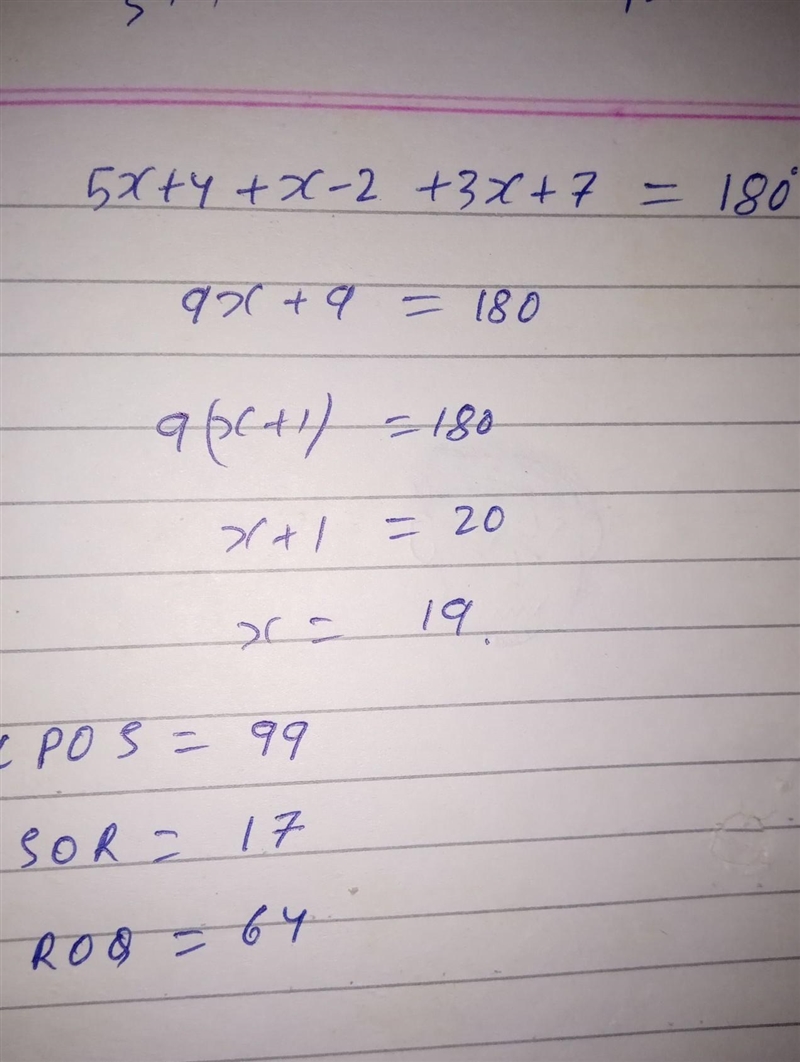 5x+4 +x-2 +3x+7 = 180°
9x + 9 = 180
9(x+1) = 180
x+1 = 20
x = 19.
∠POS = 99
SOR = 17
ROQ = 64